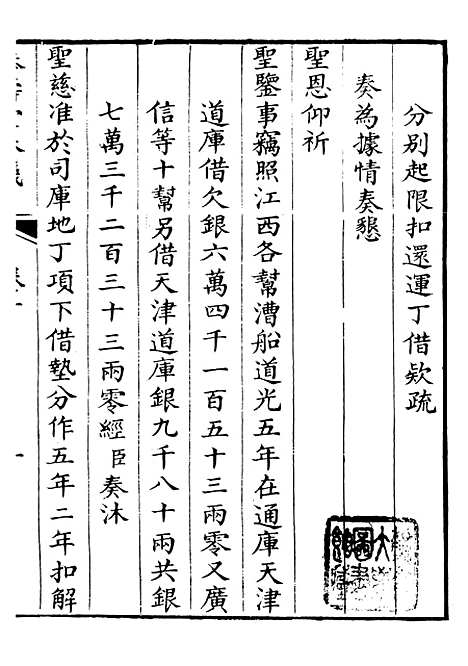 分别起限扣還運丁借欵疏
奏為據情奏懇
聖恩仰祈
聖鑒事竊照江西各幫漕船道光五年在通庫天津
道庫借欠銀六萬四千一百五十三兩零又廣
信等十幫另借天津道庫銀九千八十兩共銀
七萬三千二百三十三兩零經臣奏沐
聖慈准於司庫地丁項下借墊分作五年二年扣解